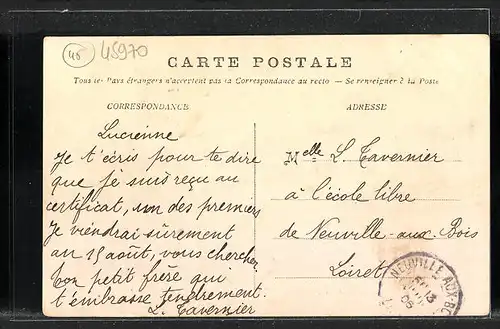 45
45970
CARTE POSTALE
Tous les Pays étrangers n'acceptent pas la Correspondance au recto — Se renseigner à la Poste
CORRESPONDANCE
Lucienne
Je t'écris pour te dire
que je suis reçu au
certificat, un des premiers
Je viendrai sûrement
au 15 août, vous chercher
bon petit frère qui
t'embrasse tendrement.
L. Tavernier
ADRESSE
Melle L. Tavernier
à l'école libre
de Neuville-aux-Bois
Loiret
NEUVILLE AUX BOIS